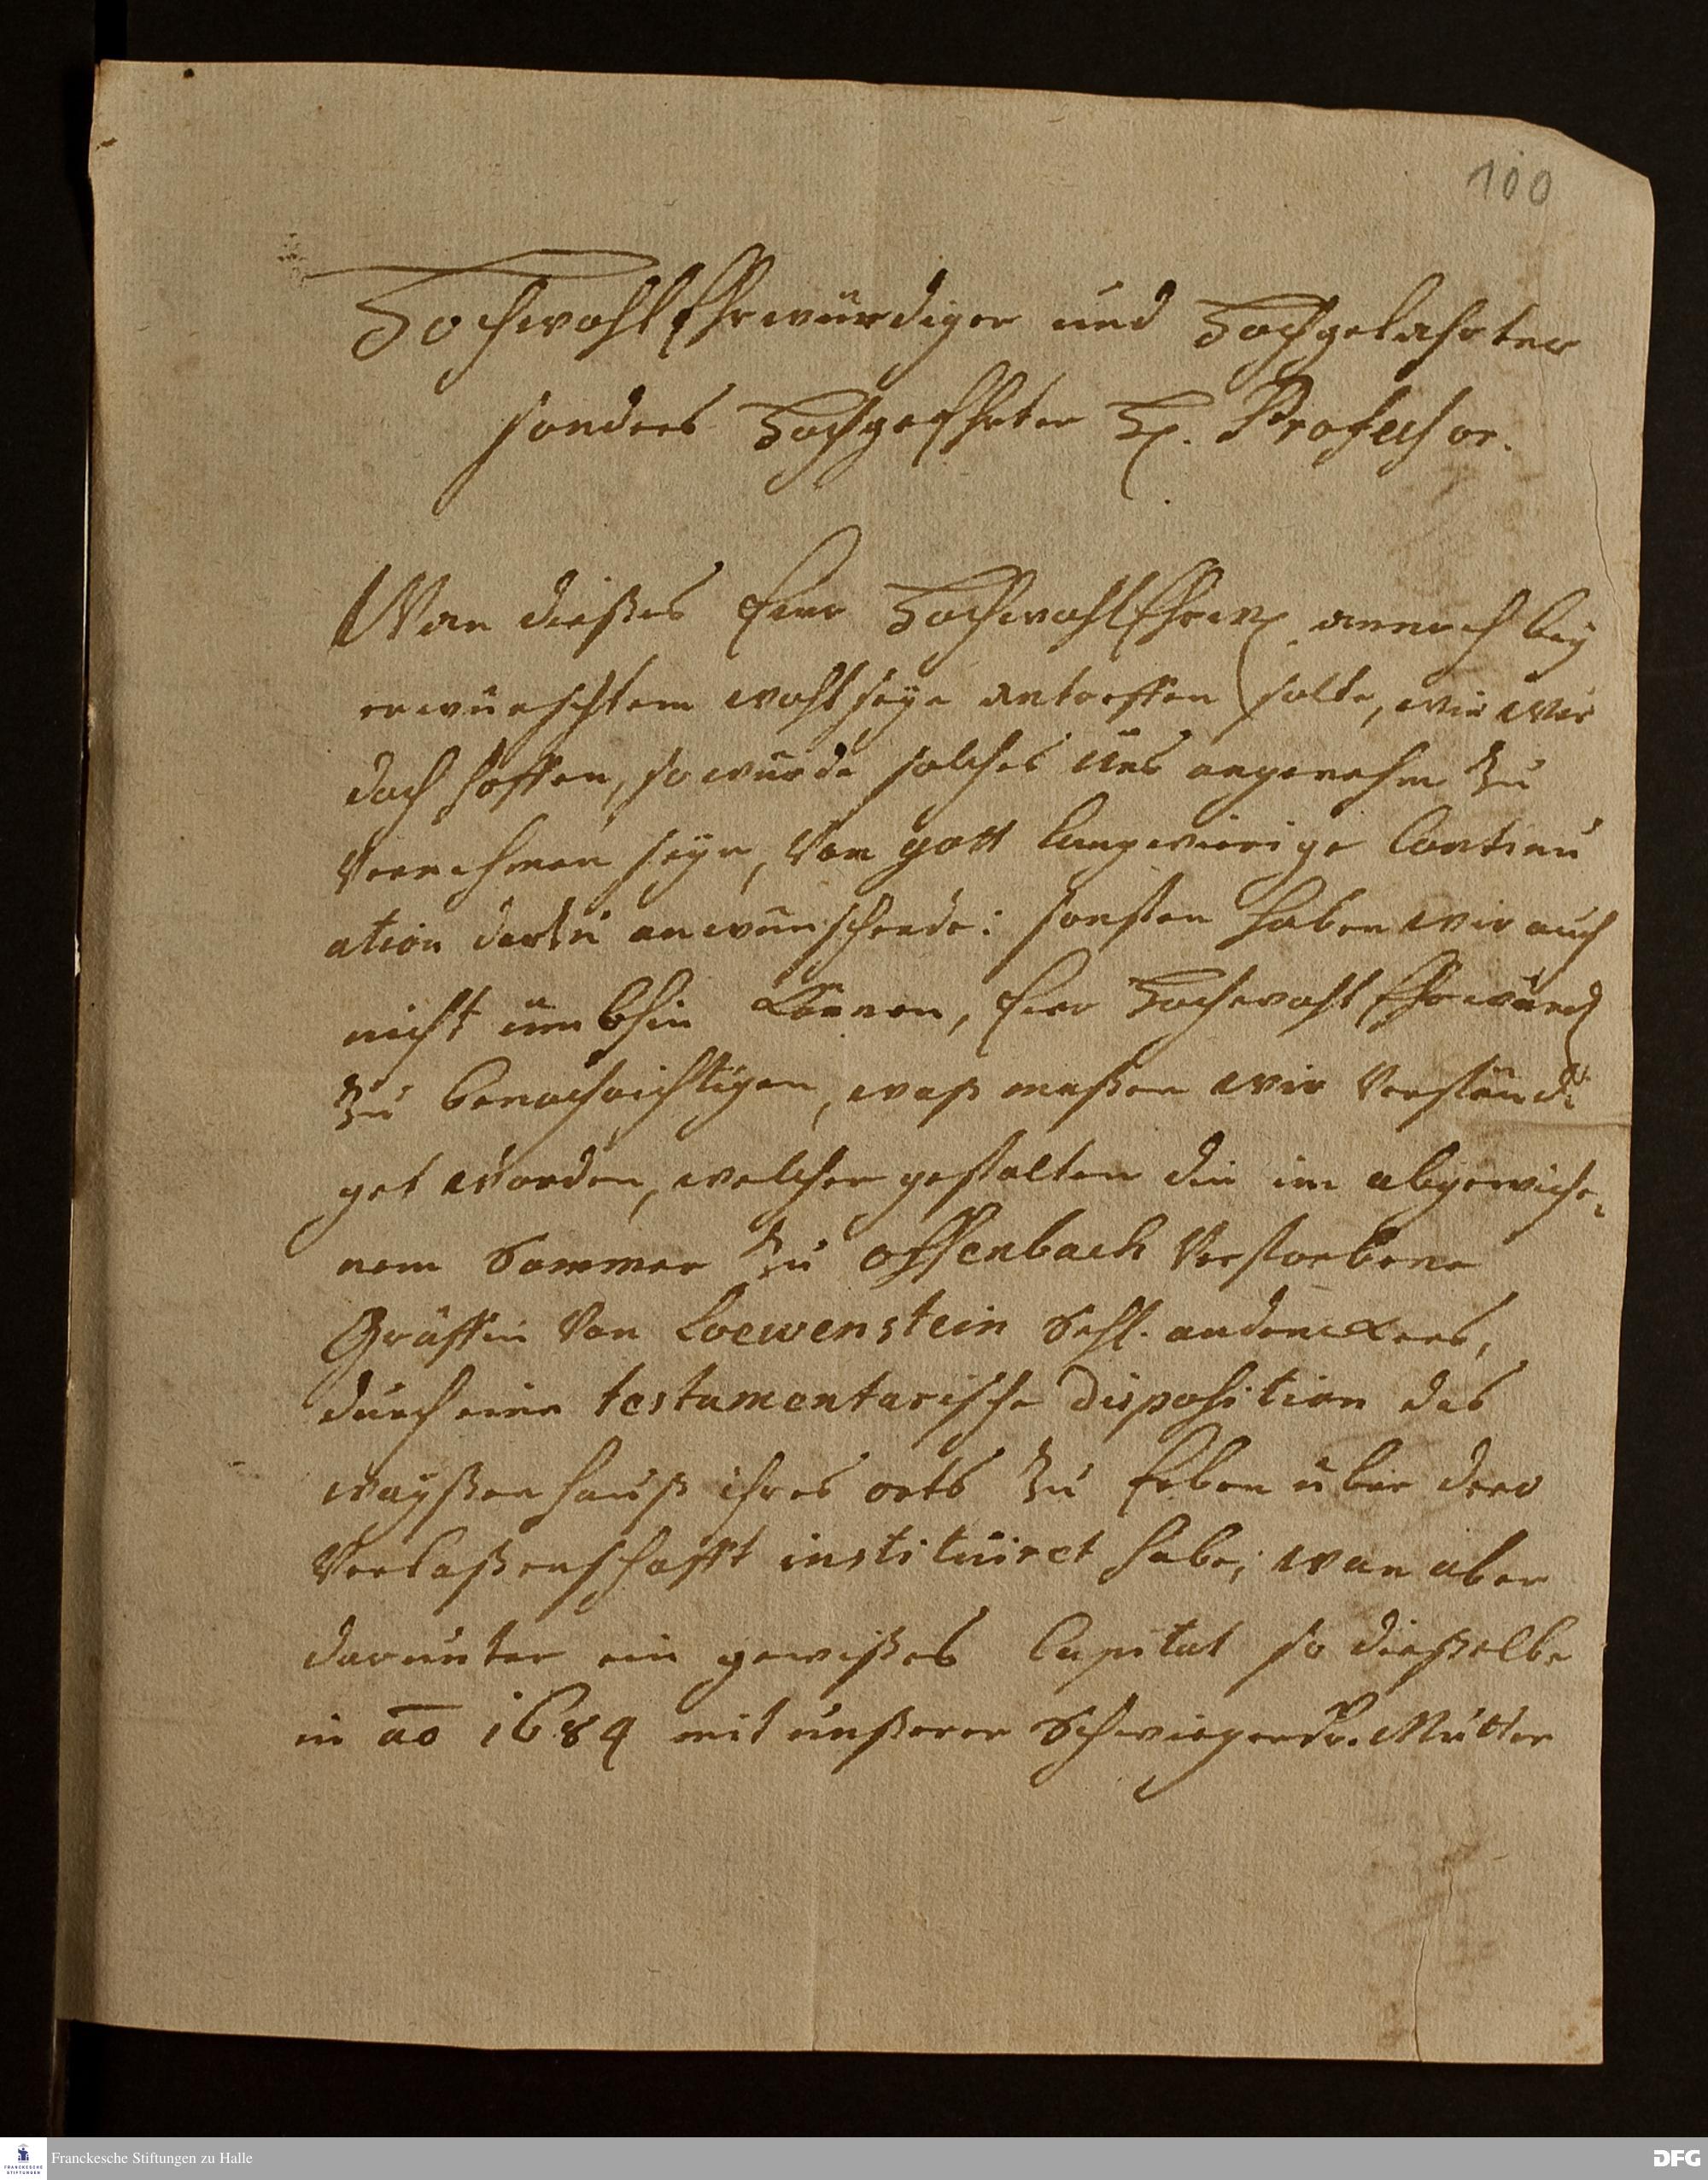 100
HochwohlEhrwürdiger und Hochgelahrter
sonders HochgeEhrter H. Professor.
Wan dießes Euer HochwohlEhrw. annoch bey
erwünschtem wohlseyn antreffen solte, wie wir
doch hoffen, so würde solches uns angenehm zu
Vernehmen seyn, Von gott langwierige Continu
ation darzu anwünschende: sonsten haben wir auch
nicht umbhin können, Euer HochwohlEhrwürd
zu benachrichtigen, was maßen wir Verständi
get worden, welcher gestalten die im abgewiche-
nem Sommer zu offenbach Verstorbene
Gräffin Von Loewenstein Sehl. andenckens,
durch eine testamentarische disposition das
waysenhauß ihres orts zu Erben über dero
Verlaßenschafft instituiret habe; wan aber
darunter ein gewißes Capital so dießelbe
in ao 1684 mit unßerer Schwieger Mutter
Franckesche Stiftungen zu Halle
FRANCKESCHE
STIFTUNGEN
DFG